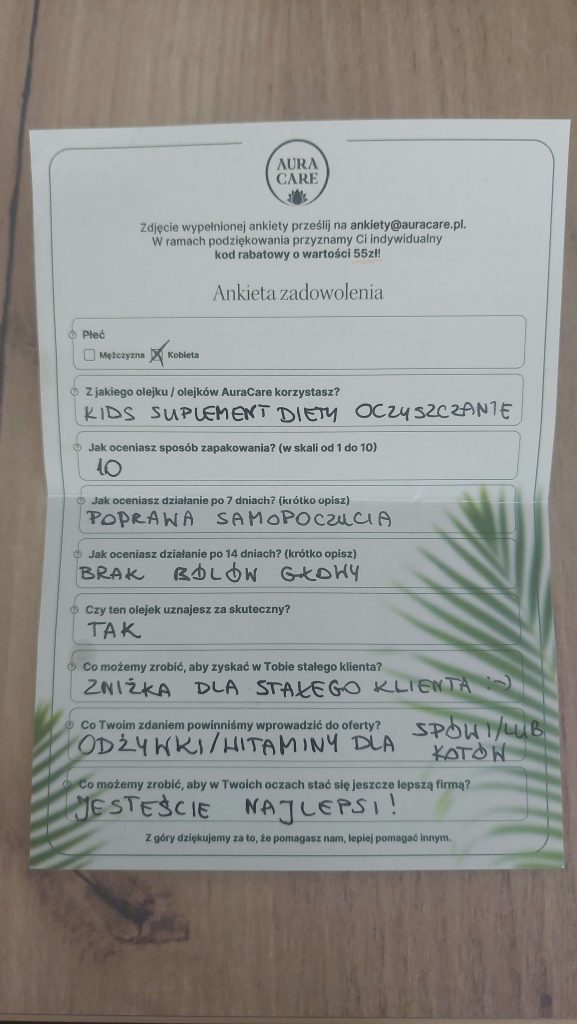 AURA
CARE
Zdjęcie wypełnionej ankiety prześlij na ankiety@auracare.pl.
W ramach podziękowania przyznamy Ci indywidualny
kod rabatowy o wartości 55zł!
Ankieta zadowolenia
Płeć
Mężczyzna Kobieta
Z jakiego olejku / olejków AuraCare korzystasz?
KIDS SUPLEMENT DIETY OCZYSZCZANIE
Jak oceniasz sposób zapakowania? (w skali od 1 do 10)
10
Jak oceniasz działanie po 7 dniach? (krótko opisz)
POPRAWA SAMOPOCZUCIA
Jak oceniasz działanie po 14 dniach? (krótko opisz)
BRAK BÓLÓW GŁOWY
Czy ten olejek uznajesz za skuteczny?
TAK
Co możemy zrobić, aby zyskać w Tobie stałego klienta?
ZNIŻKA DLA STAŁEGO KLIENTA :-)
Co Twoim zdaniem powinniśmy wprowadzić do oferty?
ODŻYWKI/WITAMINY DLA PSÓW I/LUB
KOTÓW
Co możemy zrobić, aby w Twoich oczach stać się jeszcze lepszą firmą?
JESTEŚCIE NAJLEPSI!
Z góry dziękujemy za to, że pomagasz nam, lepiej pomagać innym.